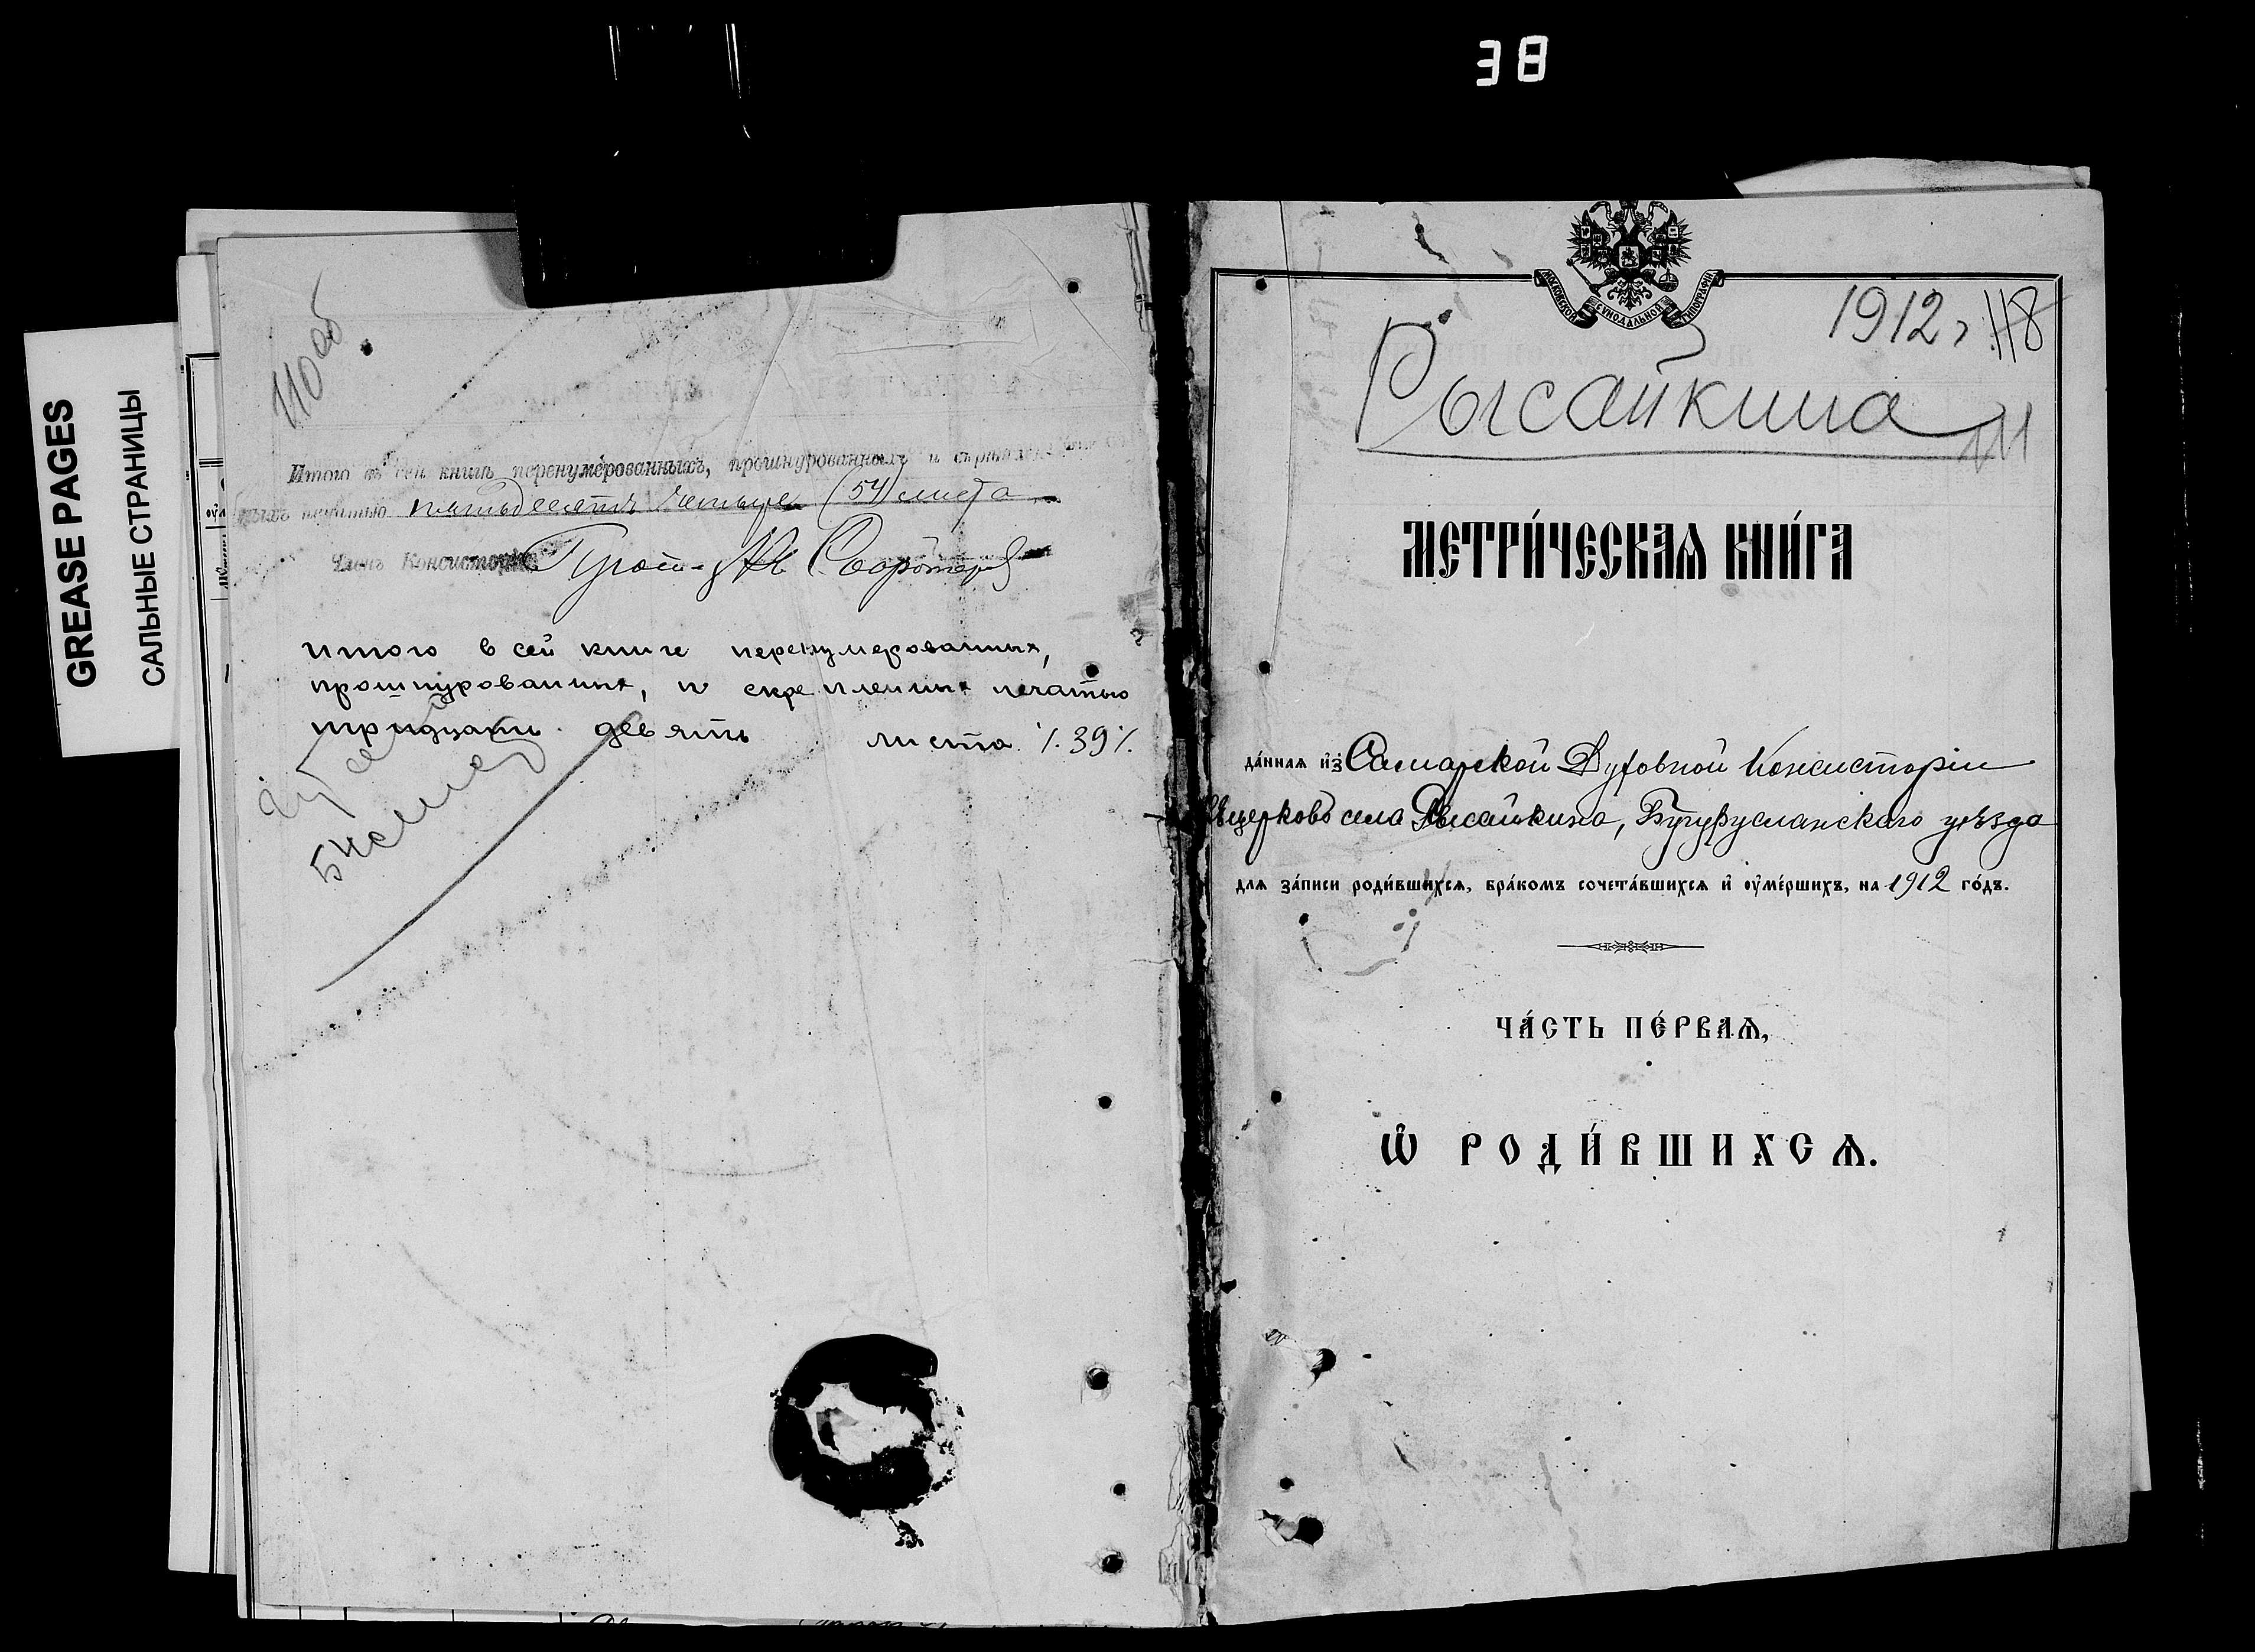 38
GREASE PAGES
САЛЬНЫЕ СТРАНИЦЫ
110 об
Итого въ сей книгѣ перенумерованныхъ, прошнурованныхъ и
печатью пятьдесятъ четыре (54) листа
Членъ Консисторіи
итого в сей книге перенумерованных,
прошнурованных, и скрепленных печатью
тридцать девять листа ./.39./.
МОСКОВСКОЙ СѴНОДАЛЬНОЙ ТИПОГРАФІИ
1912 г 118
Рысайкина
111
МЕТРИ́ЧЕСКАѦ КНИ́ГА
да́ннаѧ и҆з̾ Самарской Духовной Консисторіи
въ церковь села Рысайкина, Бугурусланскаго уѣзда
длѧ за́писи роди́вшихсѧ, бра́комъ сочета́вшихсѧ и҆ ᲂу҆ме́ршихъ, на 1912 го́дъ.
ЧА́СТЬ ПЕ́РВАѦ,
Ѡ҆ РОДИ́ВШИХСѦ.